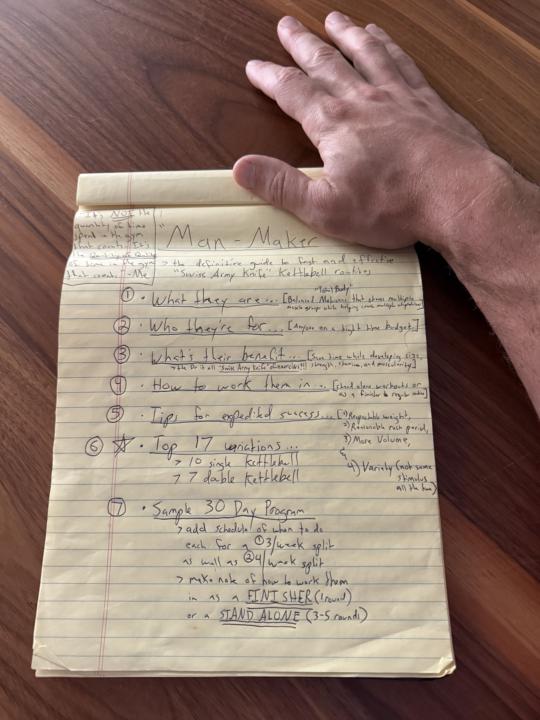 "It's NOT the
quantity of time
spent in the gym
that counts. It's
the Quality
of time in the gym
that counts. -Me
Man-Maker
> the definitive guide to fast and effective
"Swiss Army Knife" Kettlebell routines
① • What they are... [Balanced, "Total Body" that stress multiple
muscle groups while helping
② • Who they're for... [Anyone on a tight time budget.]
③ • What's their benefit... [Save time while developing size,
strength, stamina, and muscularity]
→ the Do it all "Swiss Army Knife" of exercises!!!
④ • How to work them in... [stand alone workouts or
as a finisher to regular routine]
⑤ • Tips for expedited success... [1) Respectable weight,
2) Reasonable rest period,
3) More Volume,
&
4) Variety (not same
stimulus
all the time)
⑥ ☆ • Top 17 variations...
> 10 single kettlebell
> 7 double kettlebell
⑦ • Sample 30 Day Program
> add schedule of when to do
each for a ① 3/week split
as well as ② 4/week split
> make note of how to work them
in as a FINISHER (1 round)
or a STAND ALONE (3-5 rounds)